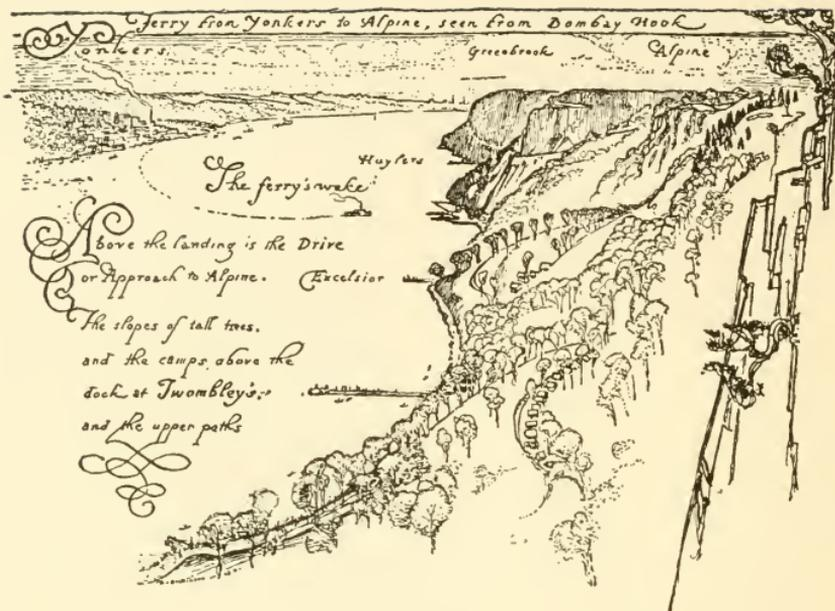 Ferry from Yonkers to Alpine, seen from Bombay Hook
Yonkers.
Greenbrook
Alpine
Huylers
The ferry's wake
Above the landing is the Drive
or Approach to Alpine.
Excelsior
The slopes of tall trees.
and the camps above the
dock at Twombley's;
and the upper paths